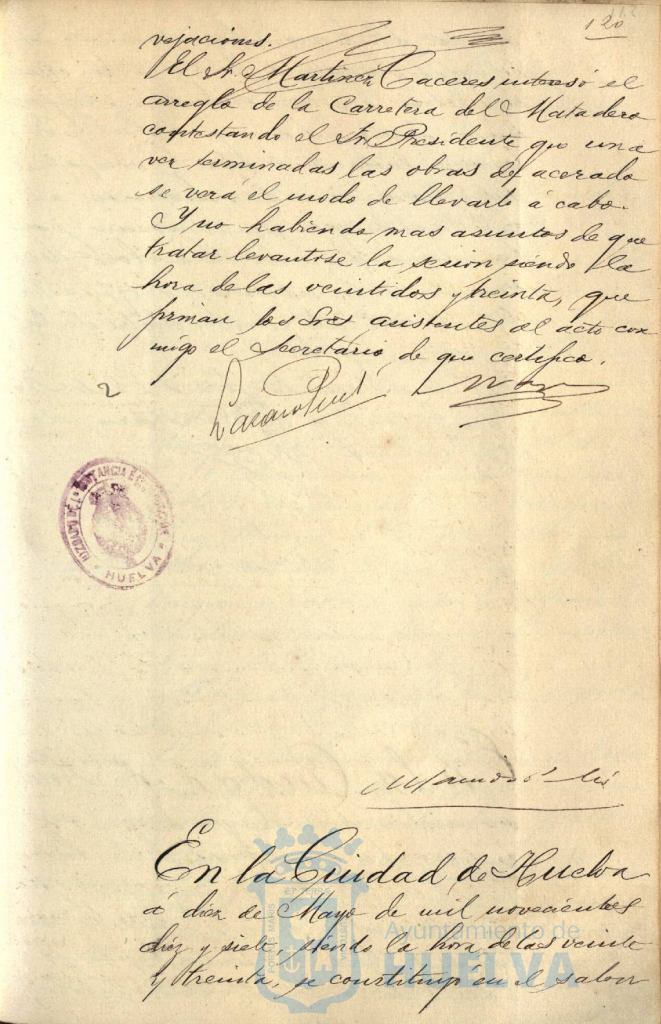 120
vejaciones.
El Sr. Martinez Caceres interesó el
arreglo de la Carretera del Matadero
contestando el Sr. Presidente que una
vez terminadas las obras de acerado
se verá el modo de llevarlo á cabo.
Y no habiendo mas asuntos de que
tratar levantose la sesion siendo la
hora de las veintidos y treinta, que
firman los Sres asistentes al acto con
migo el Secretario, de que certifico.
2
JUZGADO DE 1ª INSTANCIA É
HUELVA
En la Ciudad de Huelva
á diez de Mayo de mil novecientos
diez y siete, siendo la hora de las veinte
y treinta, se constituyó en el salon
Ayuntamiento de
HUELVA